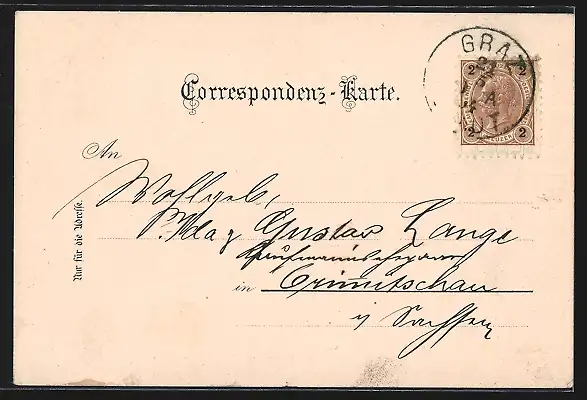 GRAZ
2 2
KREUZER
2 2
Correspondenz-Karte.
An
Wohlgeb.
Gustav Lange
in Crimmitschau
i/ Sachsen
Nur für die Adresse.